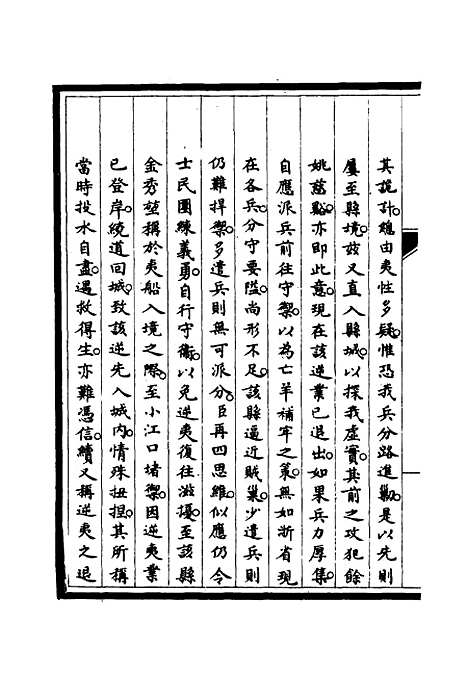 其詭計。總由夷性多疑。惟恐我兵分路進勦。是以先則
屢至縣境。茲又直入縣城。以探我虛實。其前之攻犯餘
姚慈谿。亦即此意。現在該逆業已退出。如果兵力厚集。
自應派兵前往守禦。以為亡羊補牢之策。無如浙省現
在各兵。分守要隘。尚形不足。該縣逼近賊巢。少遣兵則
仍難捍禦。多遣兵則無可派分。臣再四思維。似應仍令
士民團練義勇。自行守衛。以免逆夷復往滋擾。至該縣
金秀堃稱於夷船入境之際。至小江口堵禦。因逆夷業
已登岸。繞道回城。致該逆先入城內。情殊扭捏。其所稱
當時投水自盡。遇救得生。亦難憑信。續又稱逆夷之退